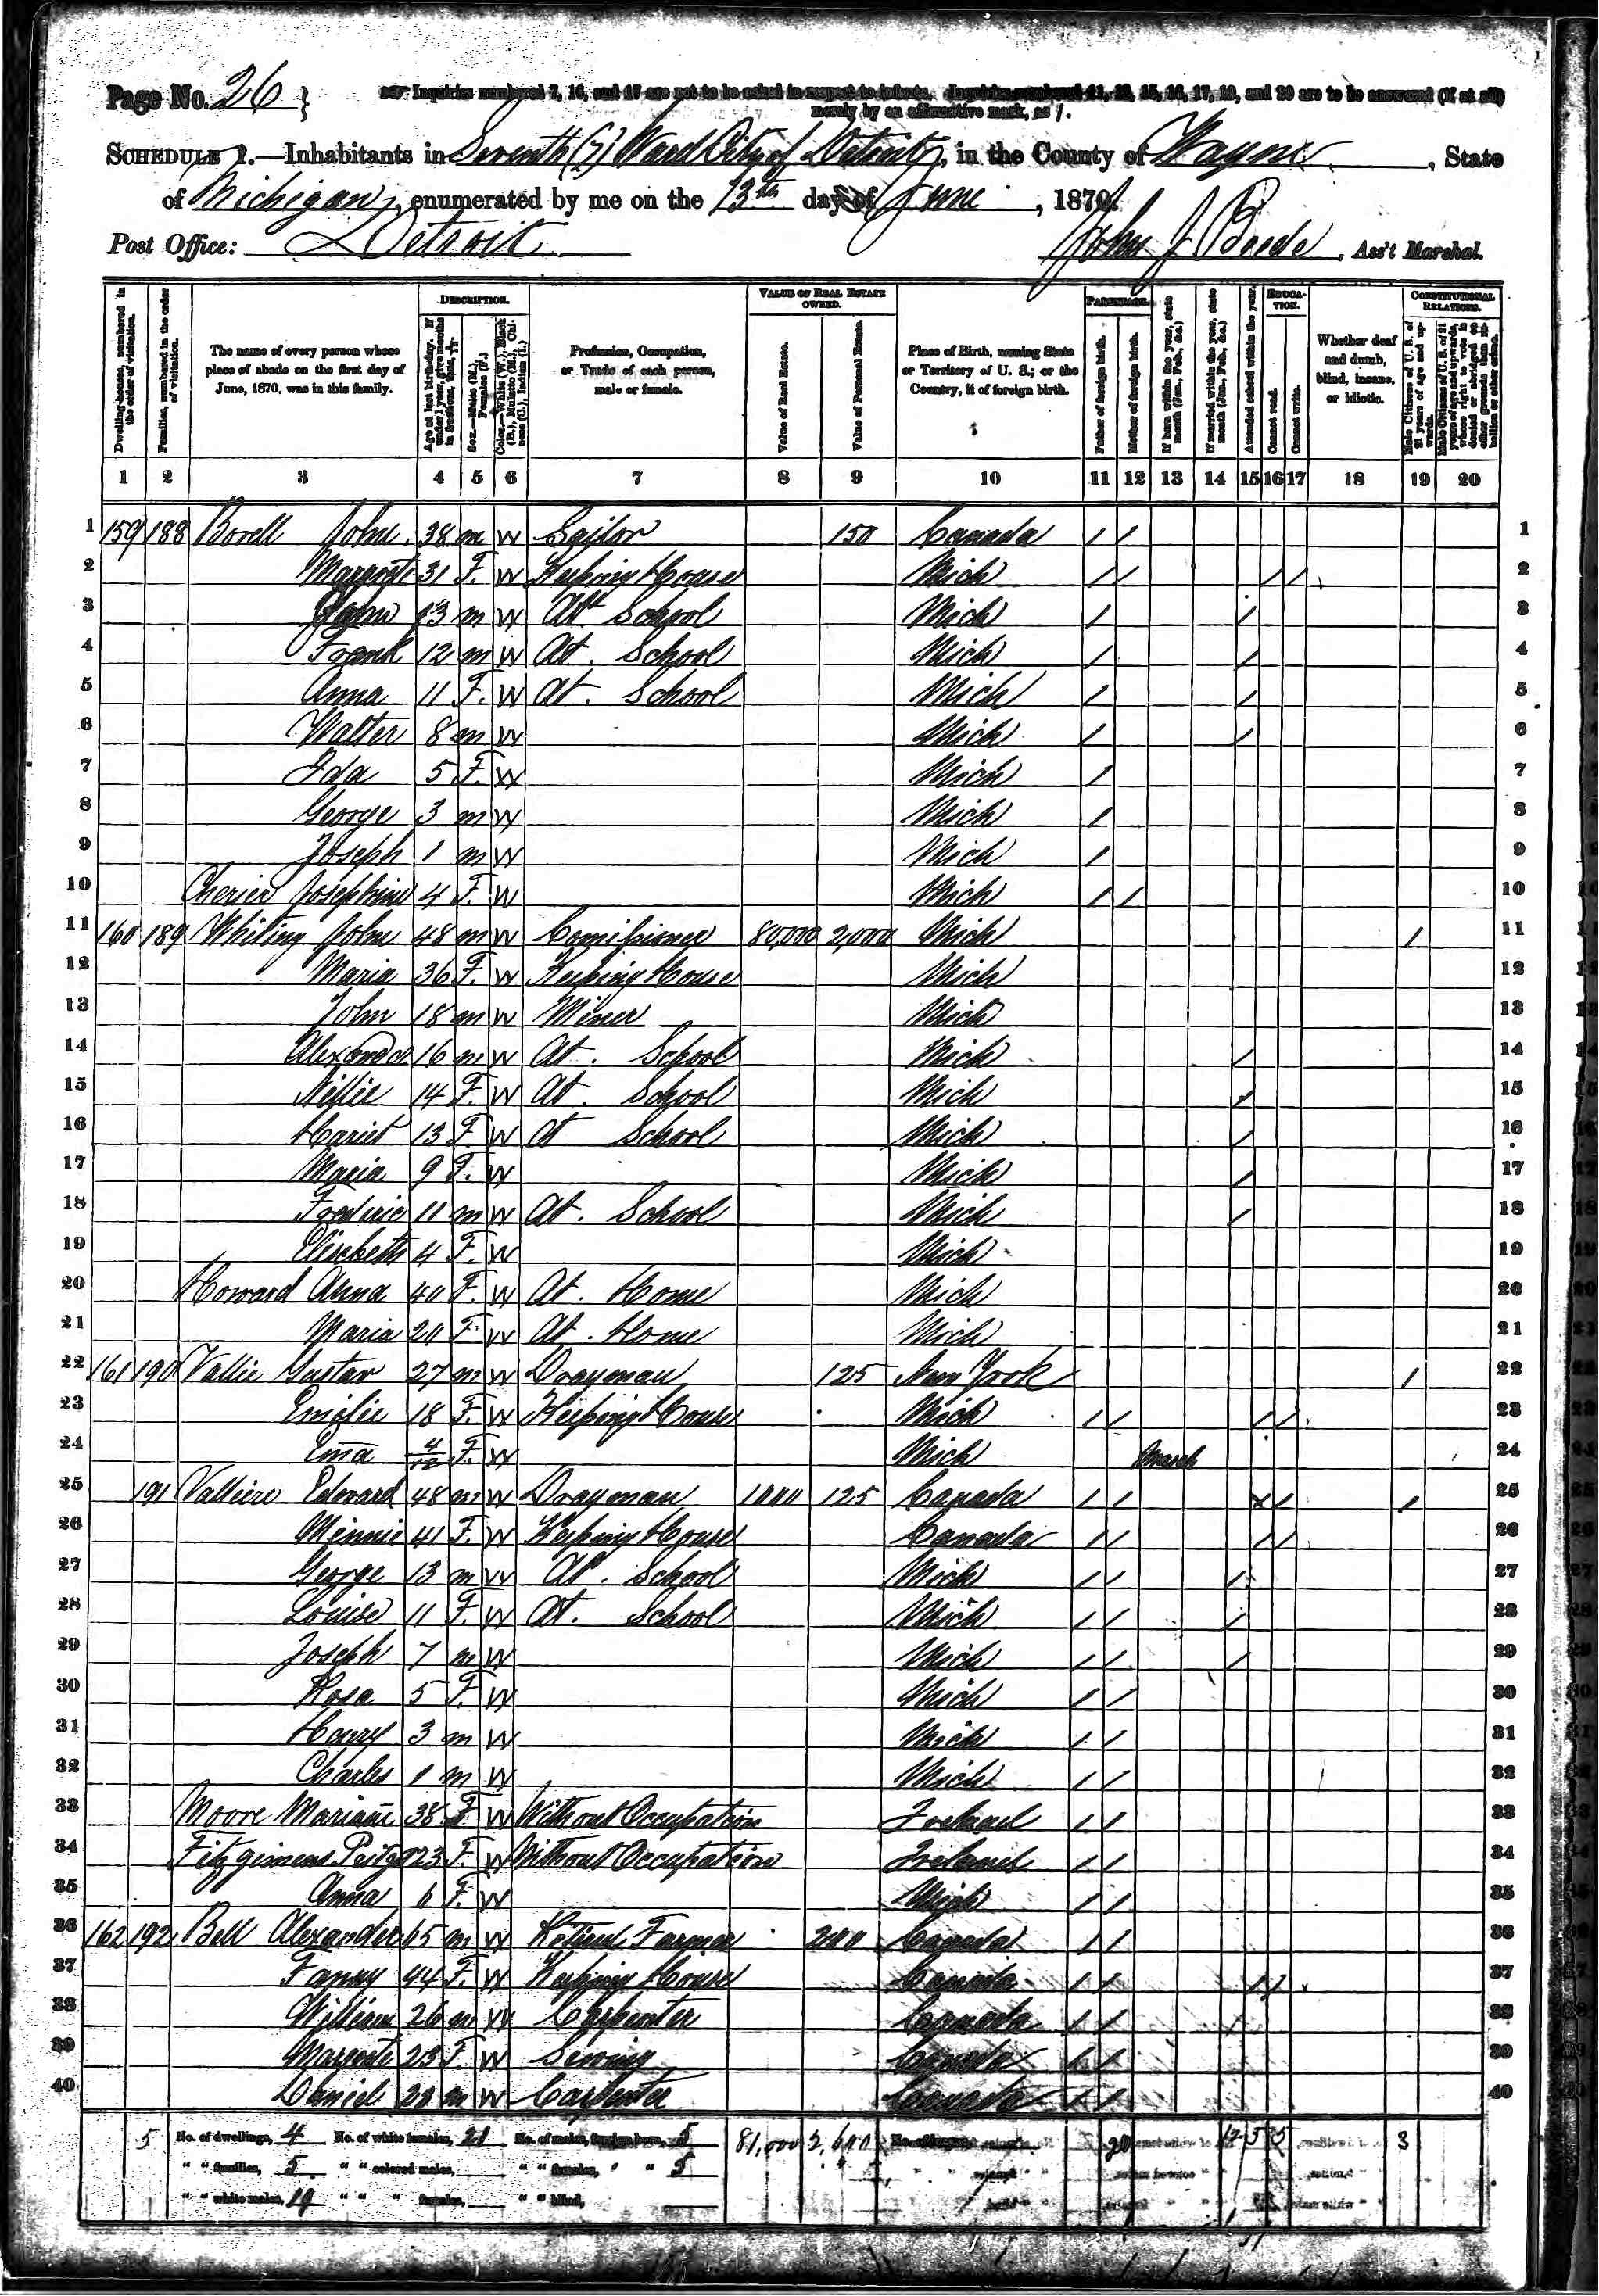 Page No. 26 }
Inquiries numbered 7, 16, and 17 are not to be asked in respect to infants. Inquiries numbered 11, 12, 15, 16, 17, 19, and 20 are to be answered (if at all)
merely by an affirmative mark, as /.
SCHEDULE 1.—Inhabitants in Seventh (7) Ward City of Detroit, in the County of Wayne, State
of Michigan, enumerated by me on the 13th day of June, 1870.
Post Office: Detroit John J. , Ass't Marshal.
Dwelling-houses, numbered in the order of visitation.
Families, numbered in the order of visitation.
The name of every person whose place of abode on the first day of June, 1870, was in this family.
DESCRIPTION.
Age at last birth-day. If under 1 year, give months in fractions, thus, 3/12
Sex.—Males (M.), Females (F.)
Color.—White (W.), Black (B.), Mulatto (M.), Chinese (C.), Indian (I.)
Profession, Occupation, or Trade of each person, male or female.
VALUE OF REAL ESTATE OWNED.
Value of Real Estate.
Value of Personal Estate.
Place of Birth, naming State or Territory of U. S.; or the Country, if of foreign birth.
PARENTAGE.
Father of foreign birth.
Mother of foreign birth.
If born within the year, state month (Jan., Feb., &c.)
If married within the year, state month (Jan., Feb., &c.)
Attended school within the year.
EDUCATION.
Cannot read.
Cannot write.
Whether deaf and dumb, blind, insane, or idiotic.
CONSTITUTIONAL RELATIONS.
Male Citizens of U. S. of 21 years of age and upwards.
Male Citizens of U. S. of 21 years of age and upwards, whose right to vote is denied or abridged on other grounds than rebellion or other crime.
1 2 3 4 5 6 7 8 9 10 11 12 13 14 15 16 17 18 19 20
1 159 188 Borell John 38 m W Sailor 150 Canada / / 1
2 Margrete 31 F. W Keeping House Mich / / / / 2
3 John 13 m W At School Mich / / 3
4 Frank 12 m W At. School Mich / / 4
5 Anna 11 F. W At. School Mich / / 5
6 Walter 8 m W Mich / / 6
7 Ida 5 F. W Mich / 7
8 George 3 m W Mich / 8
9 Joseph 1 m W Mich / 9
10 Cherier Josephine 4 F. W Mich / / 10
11 160 189 Whiting John 48 m W Comissioner 80,000 2,000 Mich / 11
12 Maria 36 F. W Keeping House Mich 12
13 John 18 m W Miner Mich 13
14 Alexander 16 m W At. School Mich / 14
15 Nellie 14 F. W At. School Mich / 15
16 Hariet 13 F. W At School Mich / 16
17 Maria 9 F. W Mich / 17
18 Frederic 11 m W At. School Mich / 18
19 Elisabeth 4 F. W Mich 19
20 Howard Anna 40 F. W At. Home Mich 20
21 Maria 20 F. W At. Home Mich 21
22 161 190 Vallie Gustav 27 m W Drayman 125 New York / 22
23 Emilie 18 F. W Keeping House Mich / / / / 23
24 Ema 4/12 F. W Mich March 24
25 191 Valliere Edward 48 m W Drayman 1000 125 Canada / / / / / 25
26 Minnie 41 F. W Keeping House Canada / / / / 26
27 George 13 m W At. School Mich / / / 27
28 Louise 11 F. W At. School Mich / / / 28
29 Joseph 7 m W Mich / / / 29
30 Rosa 5 F. W Mich / / 30
31 Henry 3 m W Mich / / 31
32 Charles 1 m W Mich / / 32
33 Moore Mariane 38 F W Without Occupation Ireland / / 33
34 Fitzgimens 23 F. W Without Occupation Ireland / / 34
35 Anna 6 F. W Mich / / 35
36 162 192 Bell Alexander 65 m W Retired Farmer 200 Canada / / 36
37 Fanny 44 F. W Keeping House Canada / / / / 37
38 William 26 m W Carpenter Canada / / 38
39 Margrete 23 F. W Sewing Canada / / 39
40 Daniel 28 m W Carpenter Canada / / 40
5 No. of dwellings, 4 No. of white females, 21 No. of males, foreign born, 5 81,000 2,600 20 17 5 5 3
" " families, 5 " " colored males, " " females, " " 5
" " white males, 19 " " " females, " " blind,